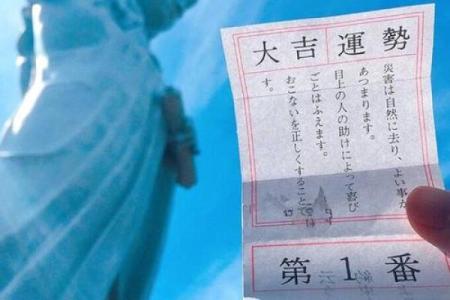 大吉運勢
災害は自然に去り、よい事が
あつまります。
目上の人の助けによって喜び
ごとはふえます。
おこないを正しくすることで
す。
第1番